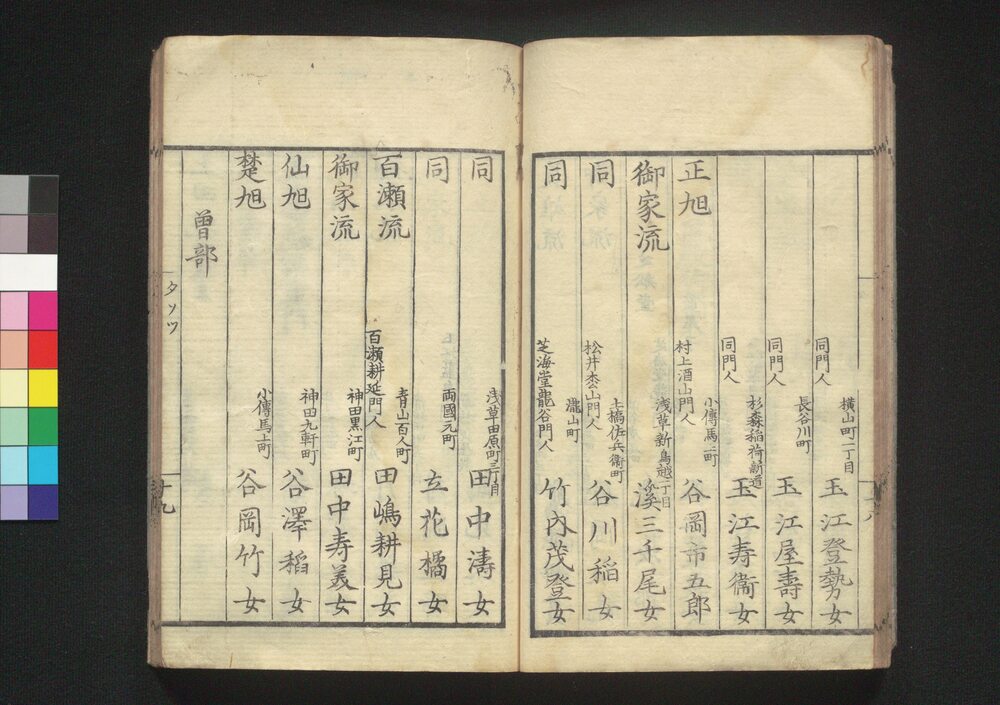 同門人
横山町一丁目
玉江登勢女
同門人
長谷川町
玉江屋壽女
同門人
杉森稲荷新道
玉江寿衛女
正旭
村上酒山門人
小傳馬上町
谷岡市五郎
御家流
浅草新鳥越一丁目
溪三千尾女
同
松井杰山門人
上槙佐兵衛町
谷川稲女
同
芝海堂龍谷門人
瀧山町
竹内茂登女
同
浅草田原町三丁目
田中濤女
同
両國元町
立花橘女
百瀬流
百瀬耕延門人
青山百人町
田嶋耕見女
御家流
神田黒江町
田中寿美女
仙旭
神田九軒町
谷澤稲女
楚旭
小傳馬上町
谷岡竹女
曽部
タソツ
十九